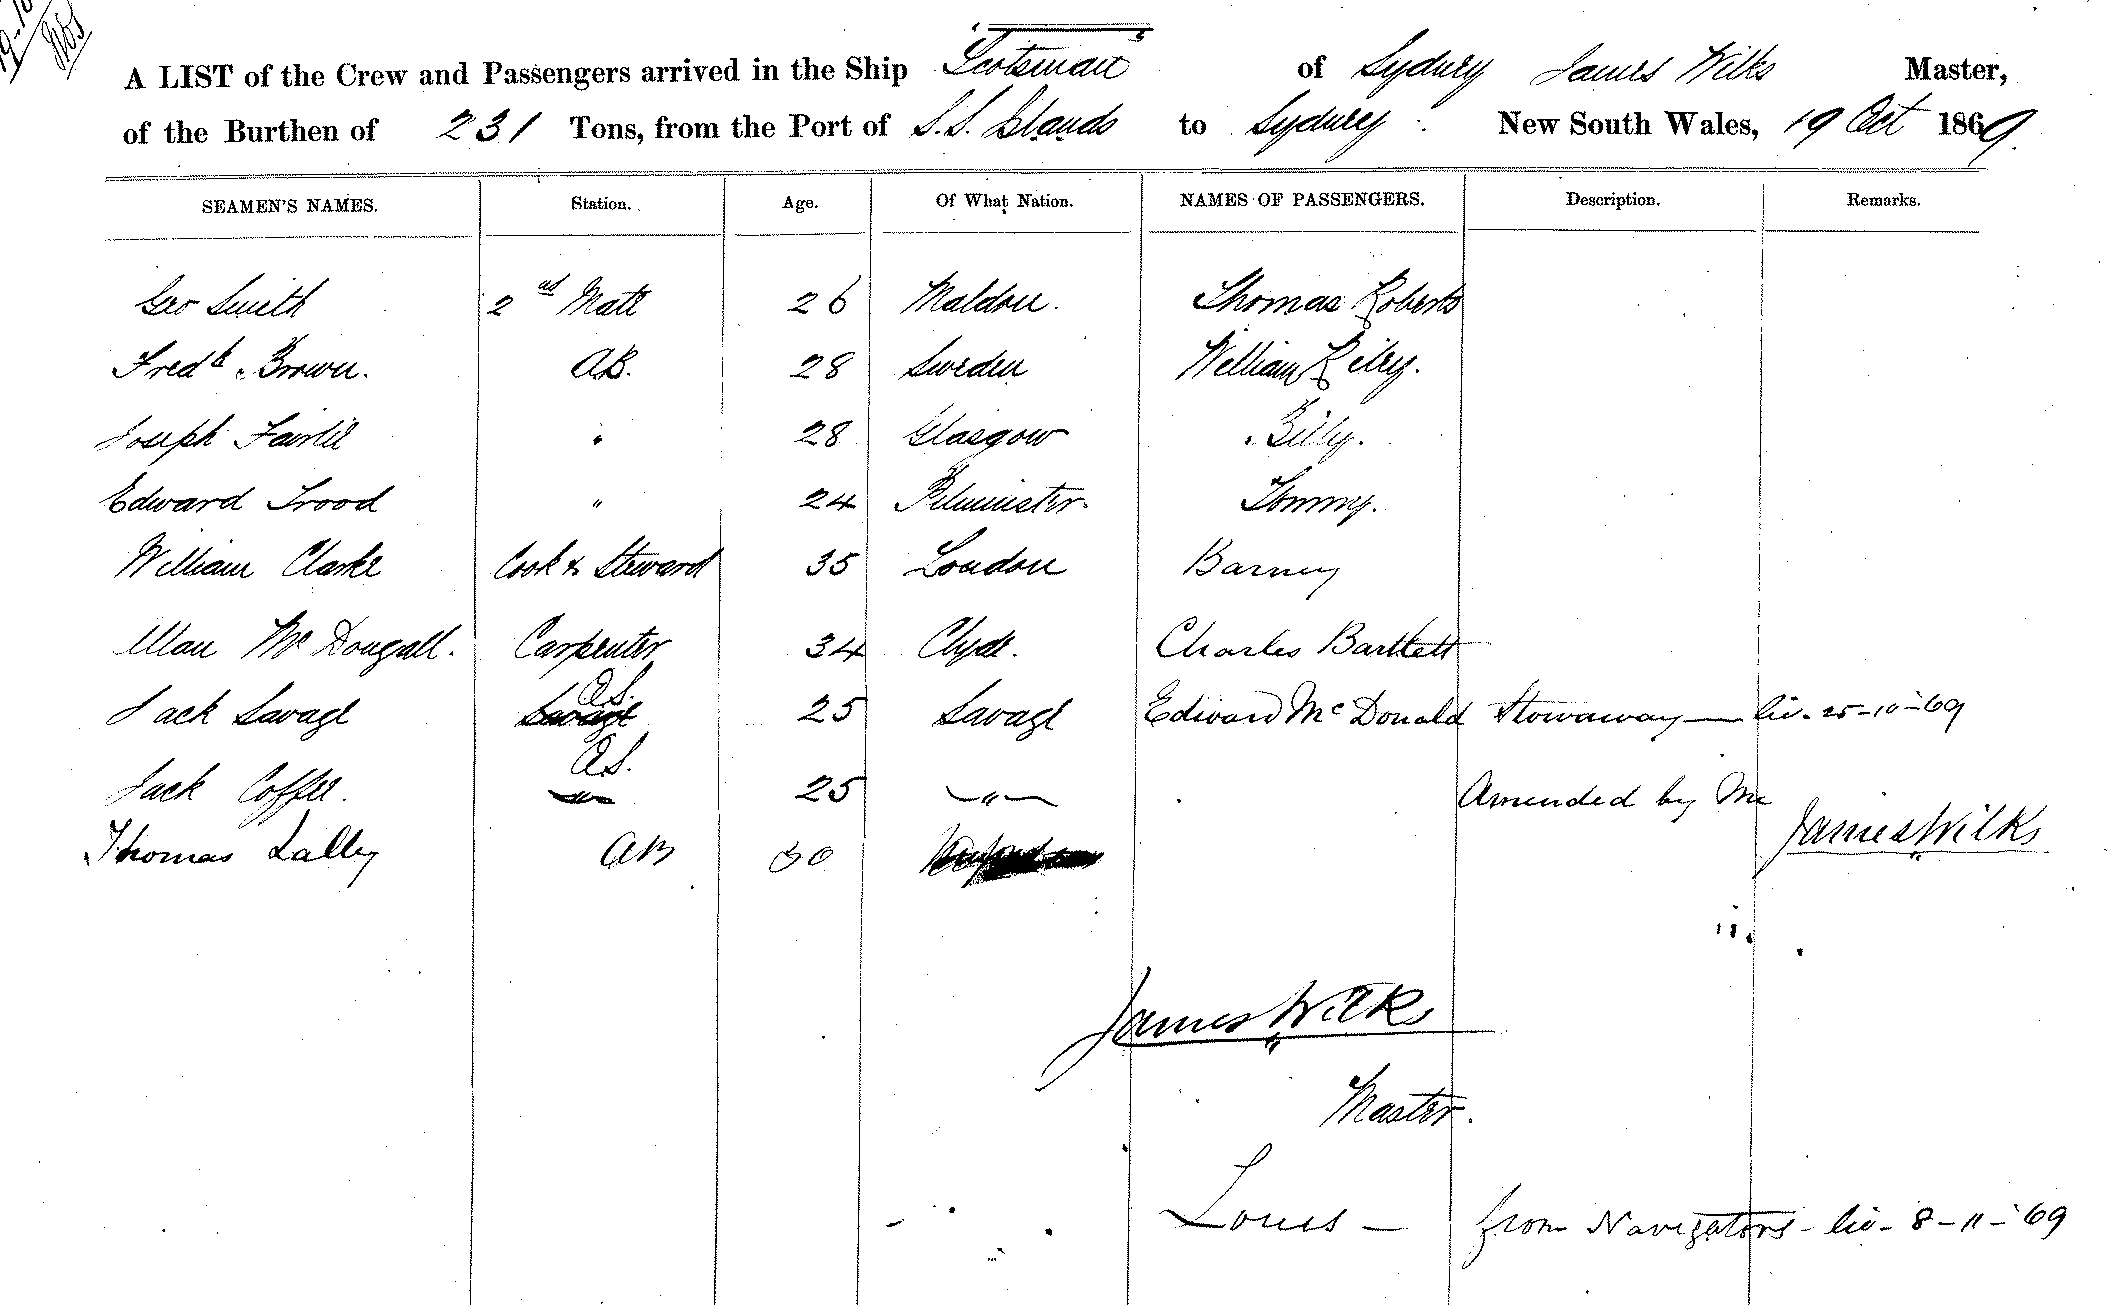 A LIST of the Crew and Passengers arrived in the Ship "Scotsman" of Sydney James Wilks Master,
of the Burthen of 231 Tons, from the Port of S.S. Islands to Sydney New South Wales, 19 Oct 1869.
SEAMEN'S NAMES. Station. Age. Of What Nation. NAMES OF PASSENGERS. Description. Remarks.
Geo Smith 2nd Mate 26 Maldon. Thomas Roberts
Fredk Brown. AB. 28 Sweden William Riley.
Joseph Fairlie " 28 Glasgow Billy.
Edward Trood " 24 Tommy.
William Clarke Cook & Steward 35 London Barney
Allan McDougall. Carpenter 34 Clyde. Charles Bartlett
Jack Savage O.S. 25 Savage Edward McDonald Stowaway — liv. 25-10-69
Jack Coffee. O.S. 25 — " — Amended by Me
Thomas Lalley AB 30 James Wilks
James Wilks
Master.
Louis — from Navigators - liv - 8-11-69